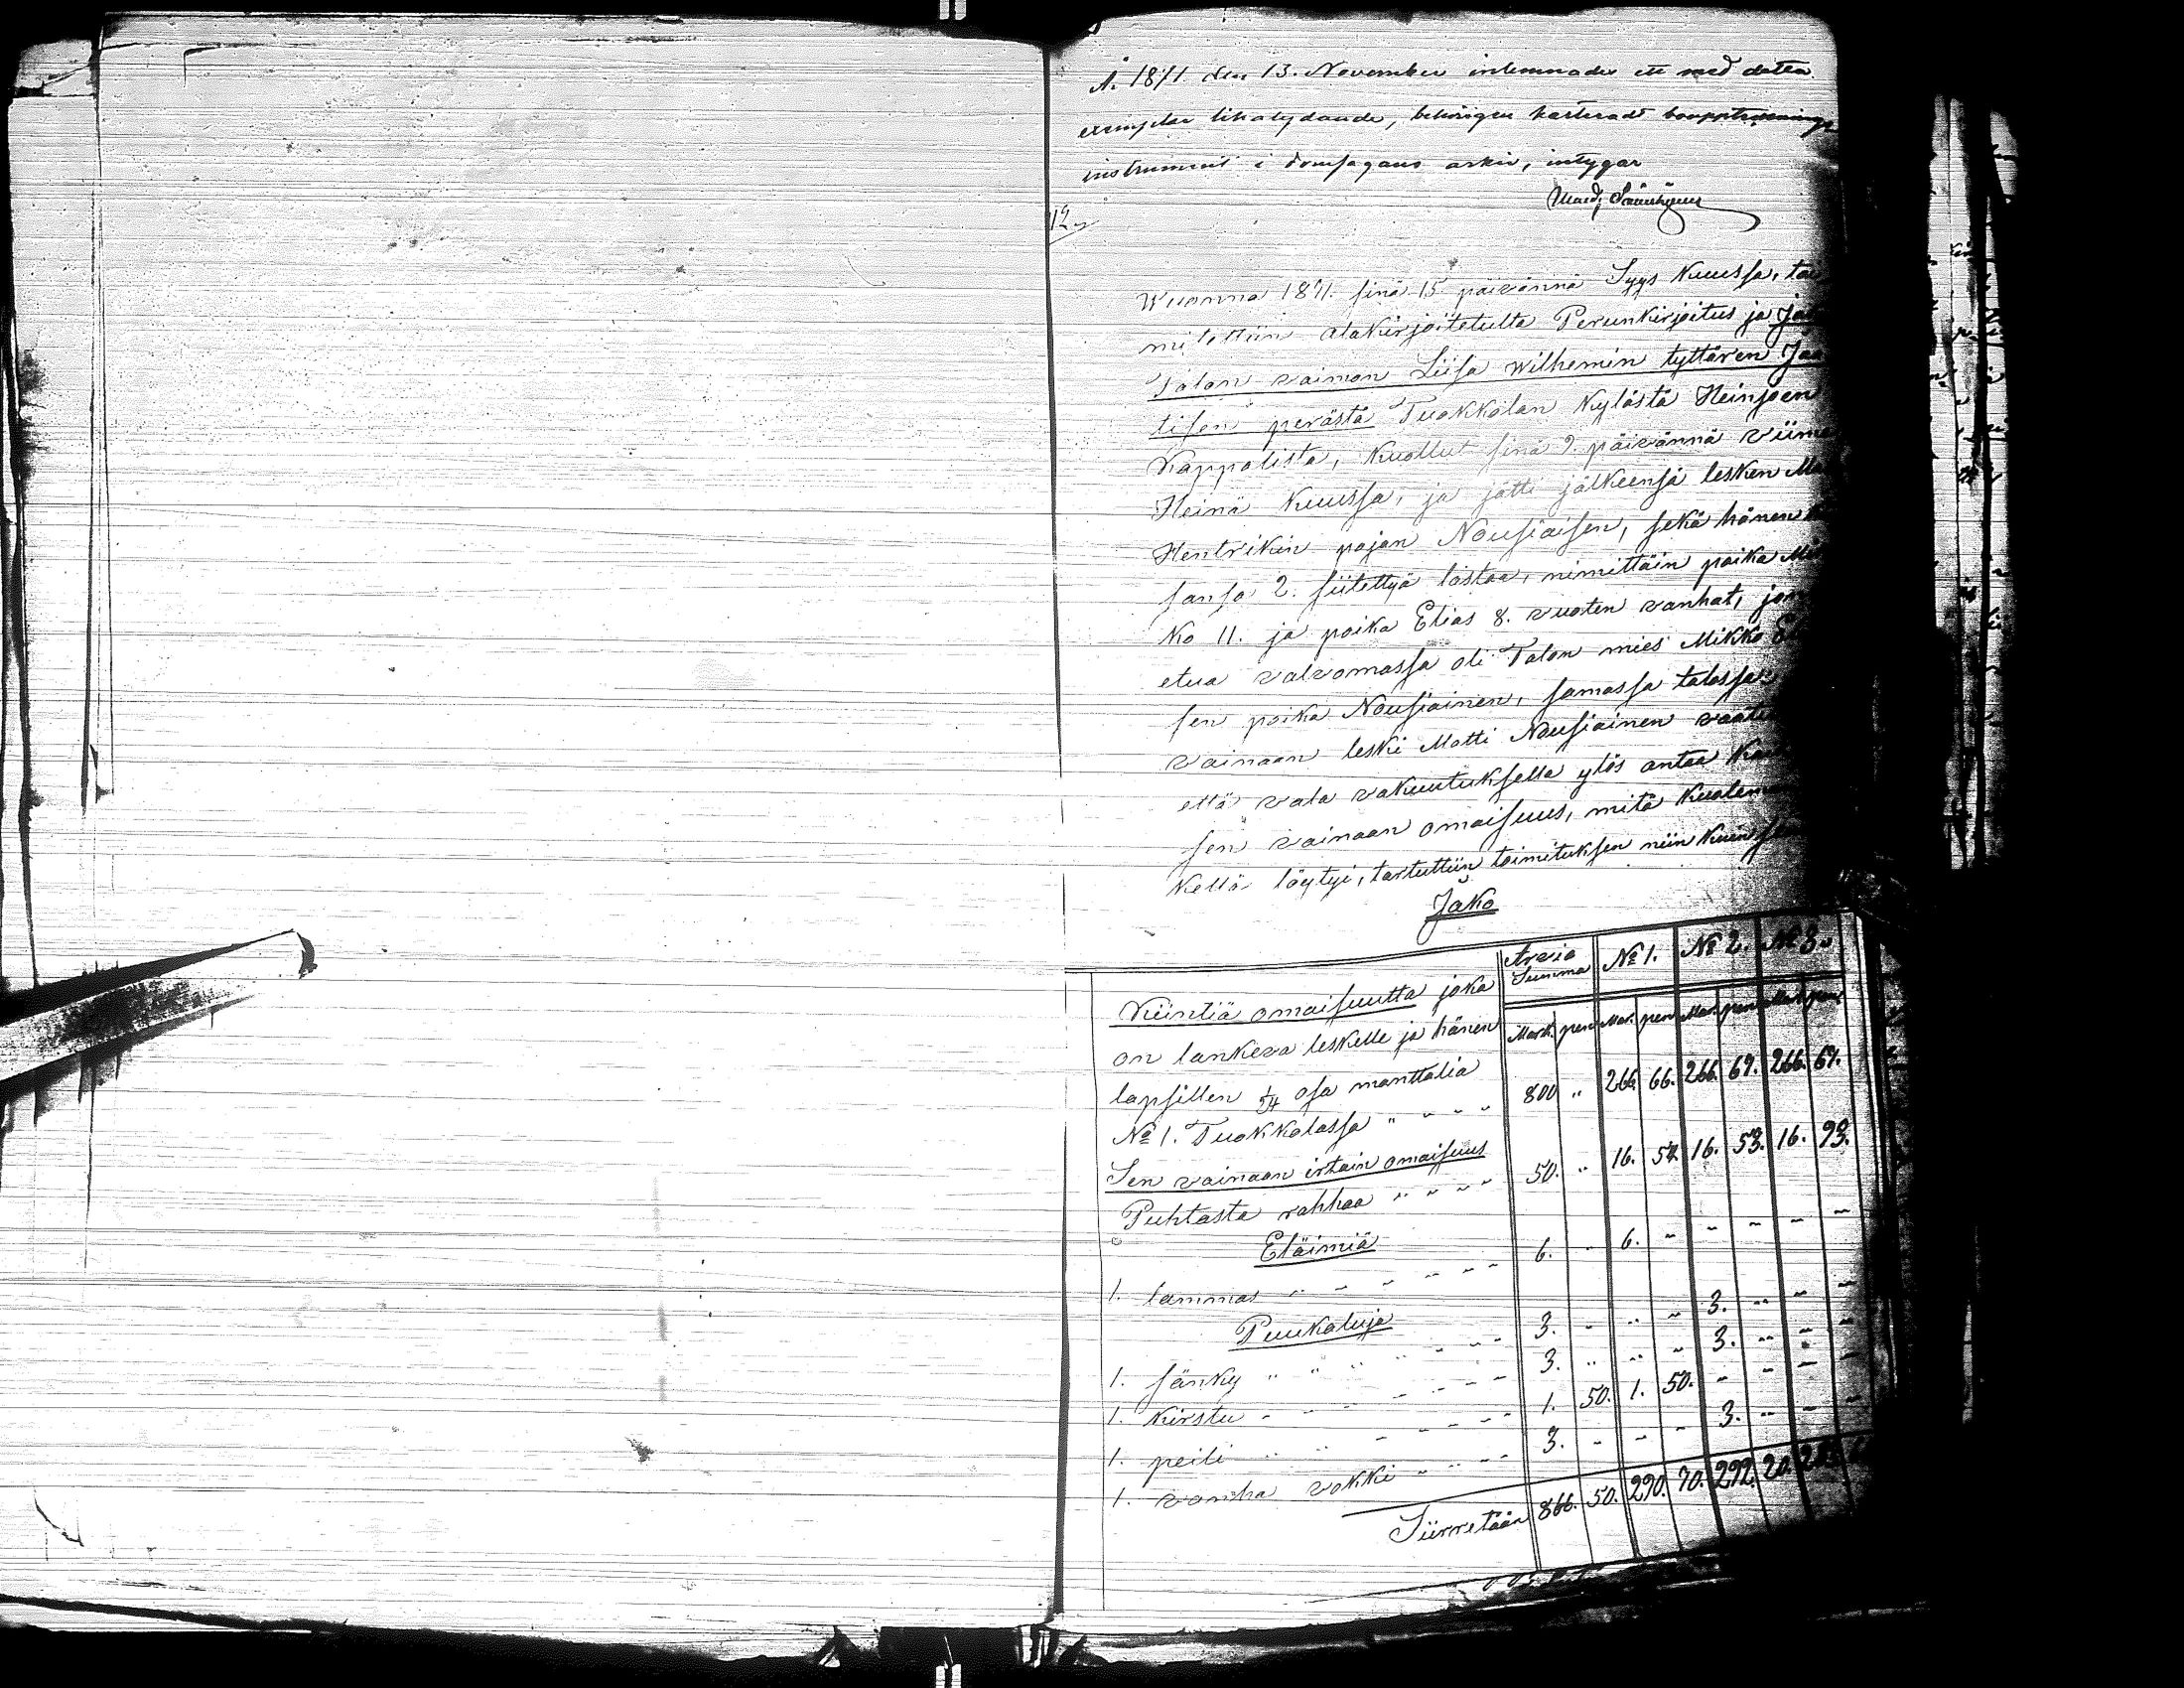 A. 1871 den 13. November inlemnades ett med detta
exemplar likalydande, behörigen karterad bouppteknings
instrument i domsagans arkiv, intygar
12
Wuonna 1871. sinä 15 päivännä Syys Kuussa, toi
mitettiin alakirjoitetulta Perunkirjoitus ja
Talon vaimon Liisa Wilhemin tyttären
tisen perästä Tuokkolan Kylästä Heinjoen
Kappelista, Kuollut sinä 9. päivännä viime
Heinä Kuussa, ja jätti jälkeensä lesken
Hentrikin pojan Nousiaisen, sekä hänen
sansa 2. siitettyä lasta, nimittäin poika Mik
ko 11. ja poika Elias 8. vuoten vanhat,
etua valvomassa oli Talon mies Mikko
sen poika Nousiainen, samassa talossa.
vainaan leski Matti Nousiainen
että vala vakuutuksella ylös antaa
sen vainaan omaisuus, mitä Kuoleman
Kellä löytyi, tartuttiin toimituksen niin Kuin
Jako
Arvio Summa № 1. № 2. № 3.
Mark. pen Mar. pen Mar. pen
Kiintiä omaisuutta joka
on lankeva leskelle ja hänen
lapsillen 1/54 osa manttalia
№ 1. Tuokkolassa " " " " 800 " 266. 66. 266. 67. 266. 67.
Sen vainaan irtain omaisuus
Puhtasta rahhaa " " " " 50. " 16. 54. 16. 53. 16. 93.
Eläimiä
1. lammas " " " " " " 6. " 6. " " " " "
Puukaluja
1. sänky " " " " " " 3. " " " 3. " " "
1. Kirstu " " " " " " 3. " " " 3. " " "
1. peili " " " " " " 1. 50. 1. 50. " " " "
1. vanha vokki " " " 3. " " " 3. " " "
Siirretään 866. 50. 290. 70. 292. 20.